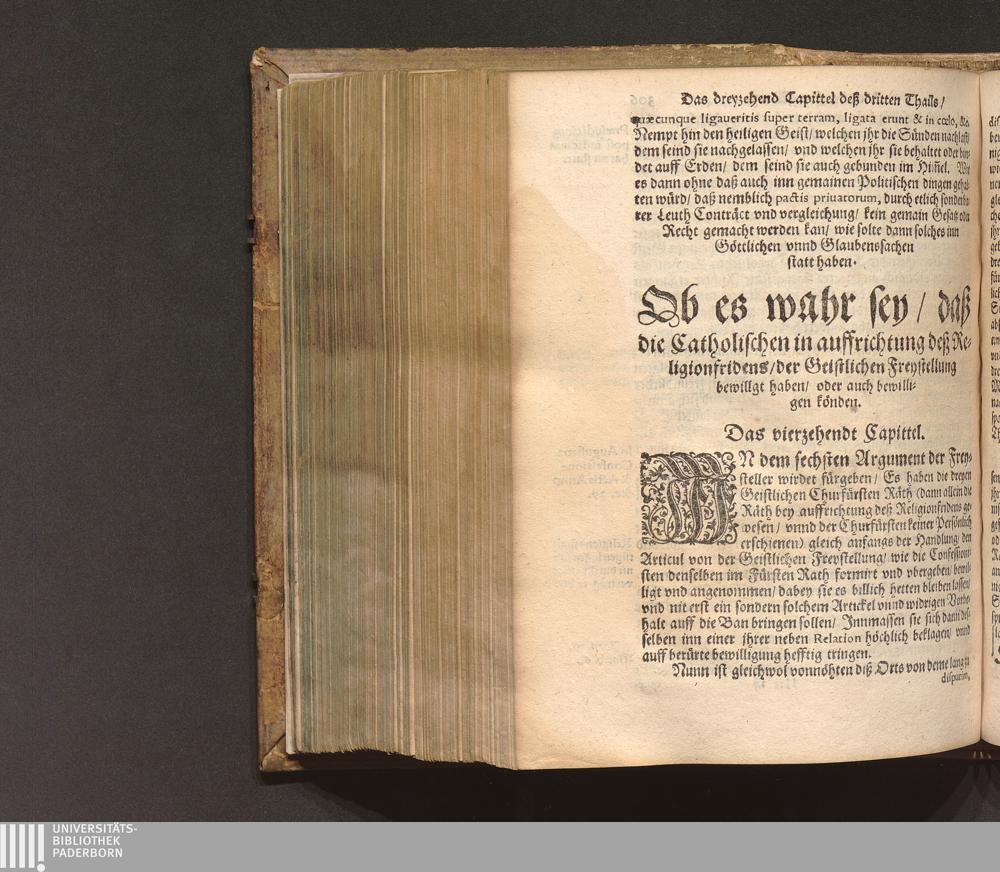 Das dreyzehend Capittel deß dritten Thails/
quæcunque ligaueritis super terram, ligata erunt & in cœlo, &c.
Nempt hin den heiligen Geist/ welchen jhr die Sünden nachlaßt/
dem seind sie nachgelassen/ vnd welchen jhr sie behaltet oder bin-
det auff Erden/ dem seind sie auch gebunden im Him̃el. Wie
es dann ohne daß auch inn gemainen Politischen dingen gehal-
ten würd/ daß nemblich pactis priuatorum, durch etlich sonderba-
rer Leuth Contráct vnd vergleichung/ kein gemain Gesatz oder
Recht gemacht werden kan/ wie solte dann solches inn
Göttlichen vnnd Glaubenssachen
statt haben.
Ob es wahr sey/ daß
die Catholischen in auffrichtung deß Re-
ligionfridens/ der Geistlichen Freystellung
bewillgt haben/ oder auch bewilli-
gen könden.
Das vierzehendt Capittel.
IN dem sechsten Argument der Frey-
steller wirdet fürgeben/ Es haben die dreyen
Geistlichen Churfürsten Räth (dann allein die
Räth bey auffrichtung deß Religionfridens ge-
wesen/ vnnd der Churfürsten keiner Persönlich
erschienen) gleich anfangs der Handlung/ den
Articul von der Geistlichen Freystellung/ wie die Confessioni-
sten denselben im Fürsten Rath formirt vnd vbergeben/ bewil-
ligt vnd angenommen/ dabey sie es billich hetten bleiben lassen/
vnd nit erst ein sondern solchem Artickel vnnd widrigen Vorbe-
halt auff die Ban bringen sollen/ Innmassen sie sich dann des-
selben inn einer jhrer neben Relation höchlich beklagen/ vnnd
auff berürte bewilligung hefftig tringen.
Nunn ist gleichwol vonnöhten diß Orts von deme lang zu
disputirn,
UNIVERSITÄTS-
BIBLIOTHEK
PADERBORN